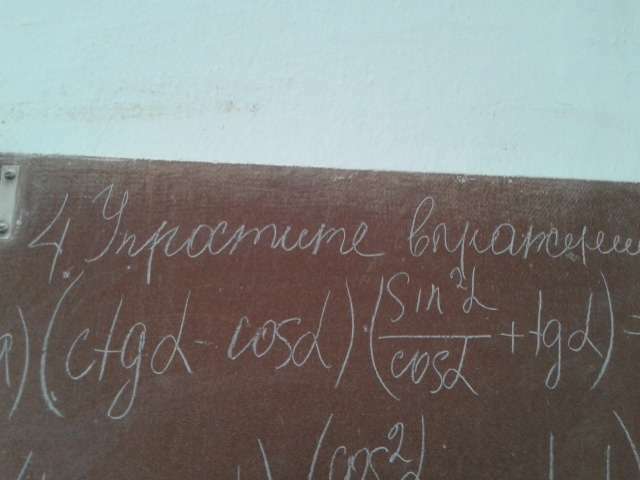 4. Упростите выражени
а) (ctgα - cosα) · (sin²α/cosα + tgα) =
(cos²